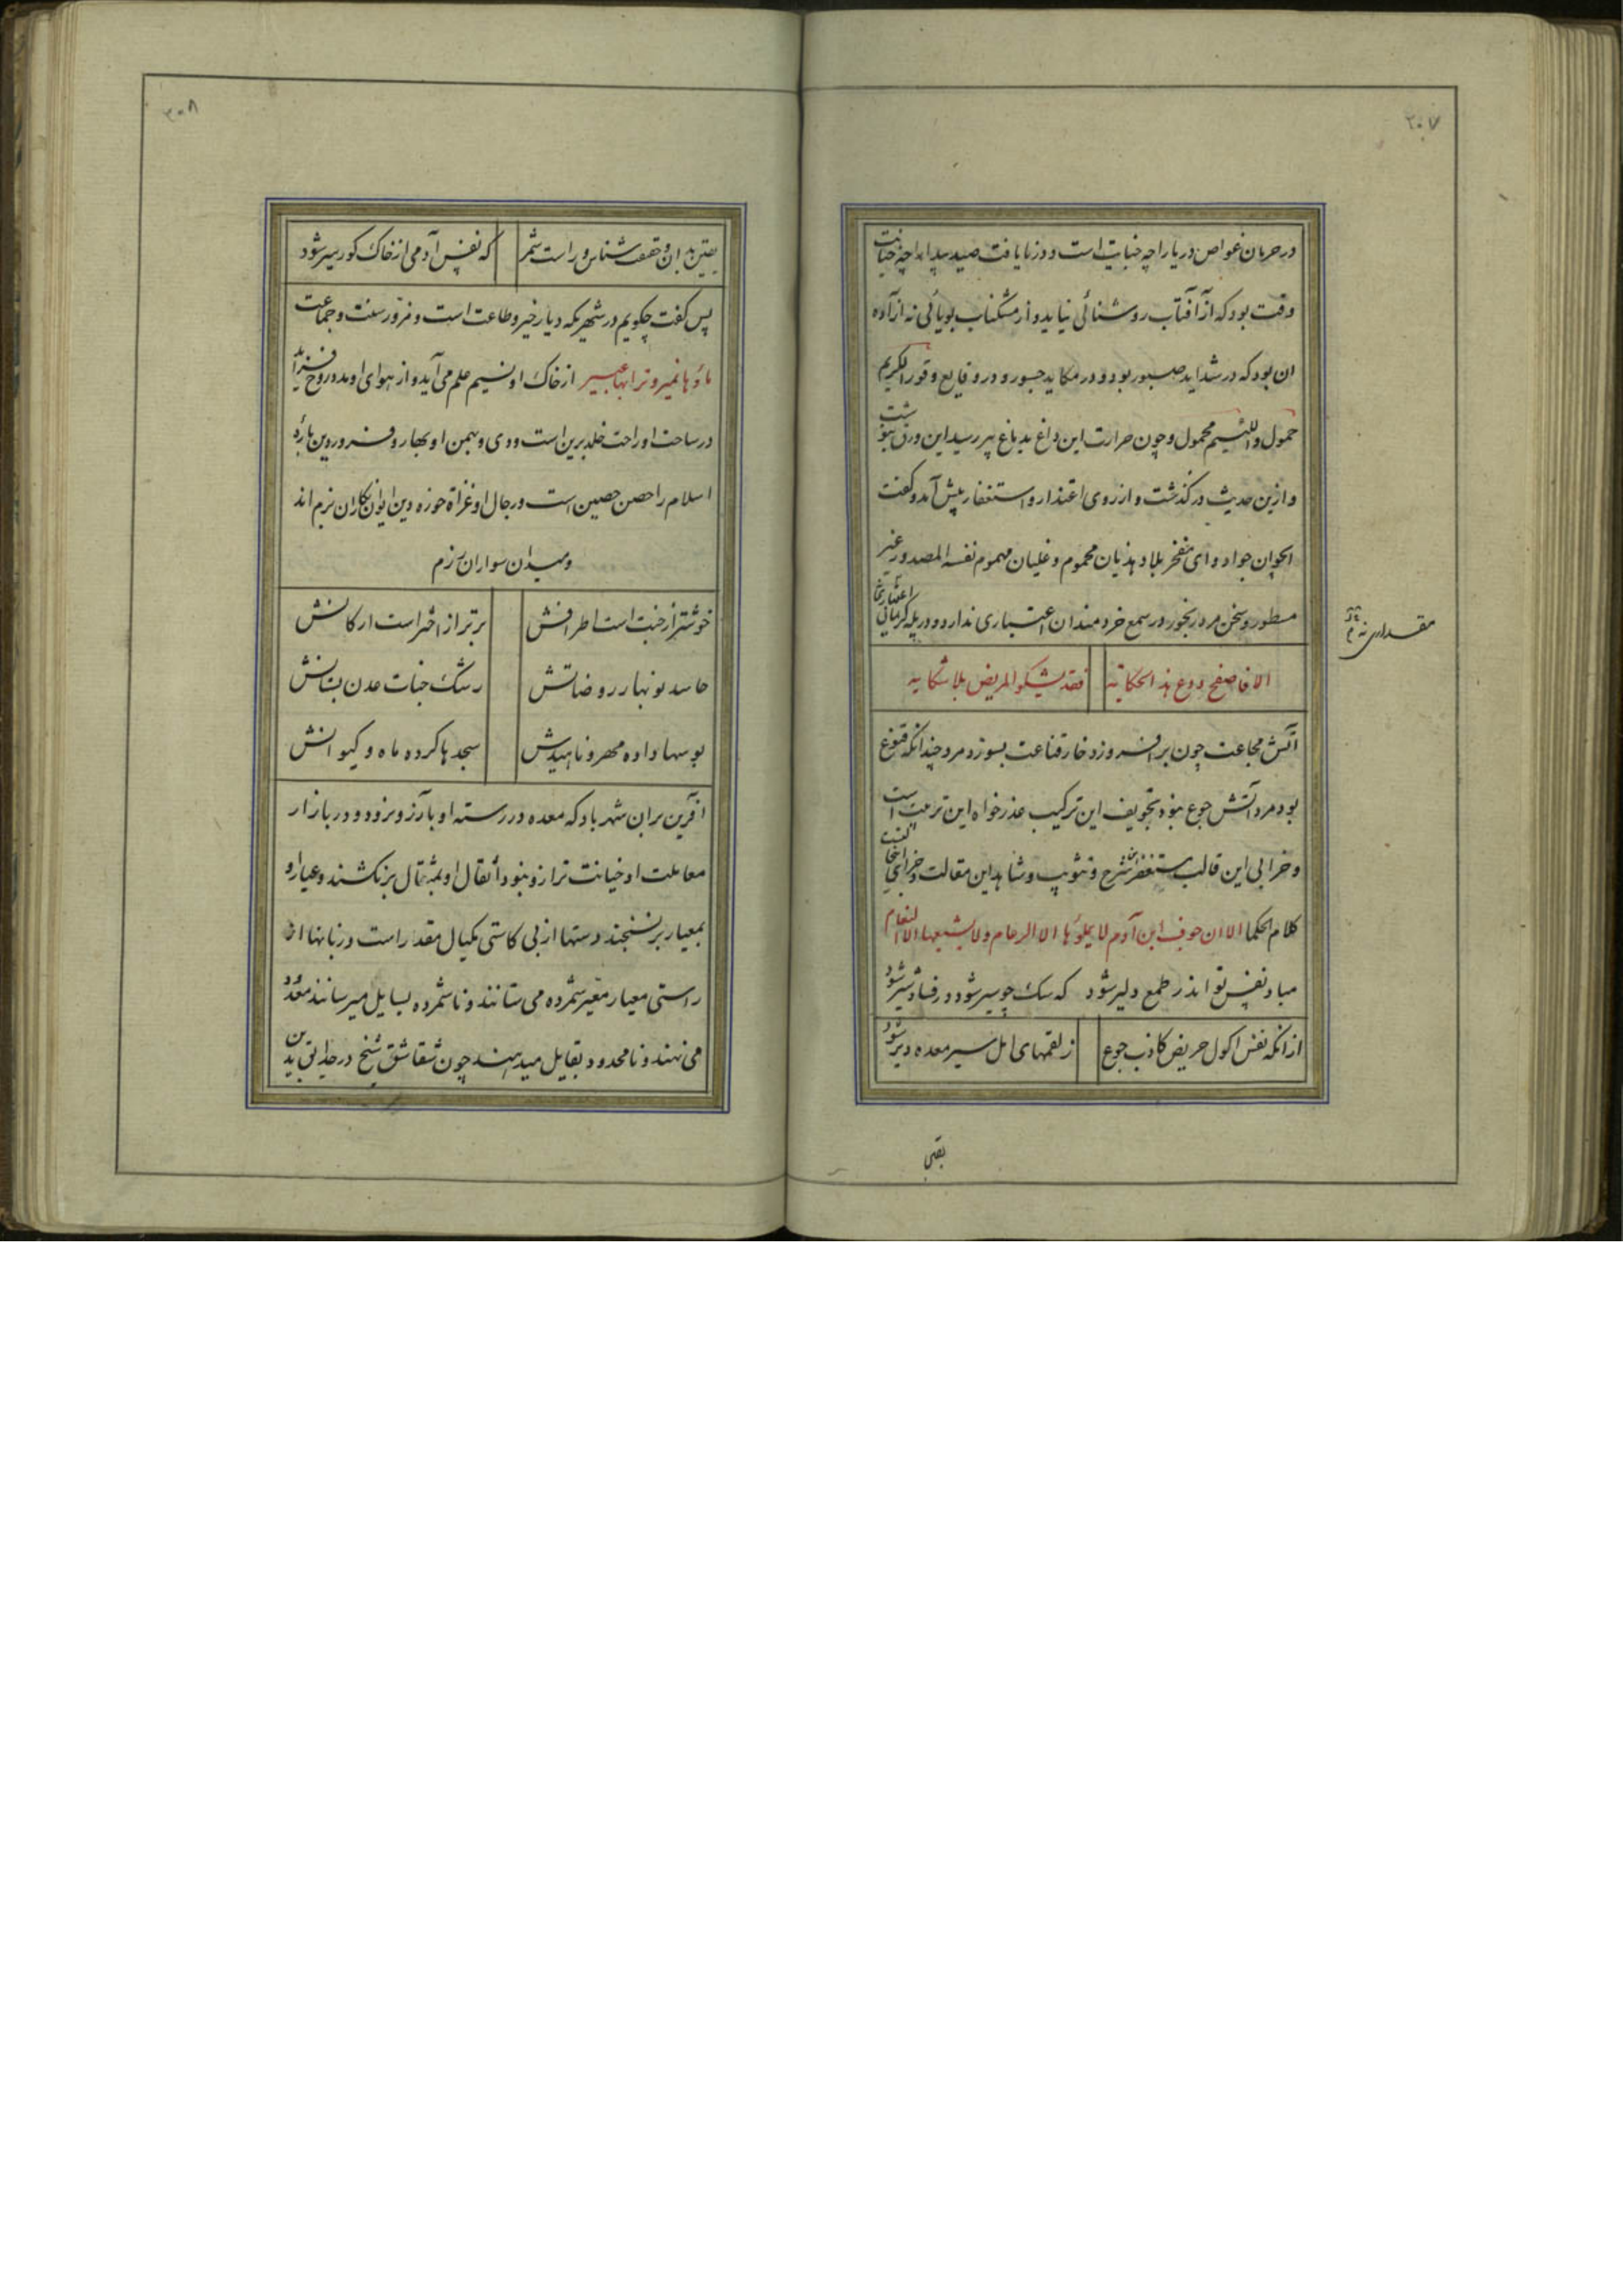 ۲۰۷
در حرمان غواص دریا را چه جنایت است و در نایافت صید بیدا را چه خیانت
وقت بود که از آفتاب روشنائی نیاید و از مشکناب بویائی نه آزاده
ان بود که در شداید صبور بود و در مکاید جسور و در وقایع وقور الکریم
حمول و اللئیم محمول و چون حرارت این داغ بدماغ پیر رسید این ورق بنوشت
و ازین حدیث درگذشت و از روی اعتذار و استغفار پیش آمد و گفت
ایجوان جواد و ای مفخر بلاد هذیان محموم و غلیان مهموم نفسه المصدور غیر
مسطور و سخن مرد رنجور در سمع خردمندان اعتباری ندارد و در پله
مقداری نه
الا فاصفح ودع هذ الحکایه فقد یشکو المریض بلا شکایه
آتش مجاعت چون برافروزد خار قناعت بسوزد مرد چندانکه قنوع
بود مرد آتش جوع نبود تجویف این ترکیب عذر خواه این ترتیب است
و خرابی این قالب مستغفر این شرح و شاهد این مقالت
کلام الحکما الا ان جوف ابن آدم لا یملؤها الا الرغام ولا یشبعها الا الطعام
مباد نفس تو اندر طمع دلیر شود که سک چو سیر شود در فساد شیر شود
از انکه نفس اکول حریص کاذب جوع ز لقمهای امل سیر معده دیر شود
یقین
۲۰۸
یقین بدان و حقیقت شناس و راست شمر که نفس آدمی از خاک کور سیر شود
پس گفت چکویم در شهریکه دیار خیر و طاعت است و مقر سنت و جماعت
ماؤها نمیر و ترابها عبیر از خاک او نسیم علم می آید و از هوای او مدد روح فزاید
در ساحت او راحت خلد برین است و دی و بهمن او بهار و فروردین باره
اسلام را حصن حصین است و رجال او غزاة حوزه دین ایوان نکاران بزم اند
و میدان سواران رزم
خوشتر از جنت است اطرافش برتر از اختر است ارکانش
حاسد نوبهار روضاتش رشک جنات عدن بستانش
بوسها داده مهر و ناهیدش سجدها کرده ماه و کیوانش
آفرین بران شهر باد که معده در رسته او بآرزو نرود و در بازار
معاملت او خیانت ترازو نبود اثقال او بمثقال برنکشند و عیار او
بمعیار برنسنجند دستها از بی کاستی مکیال مقدر است و زبانها از
راستی معیار معیر شمرده می ستانند و ناشمرده بسایل میرسانند معدود
می نهند و نامحدود بقایل میدهند چون شقاشق شیخ در حدایق بدین